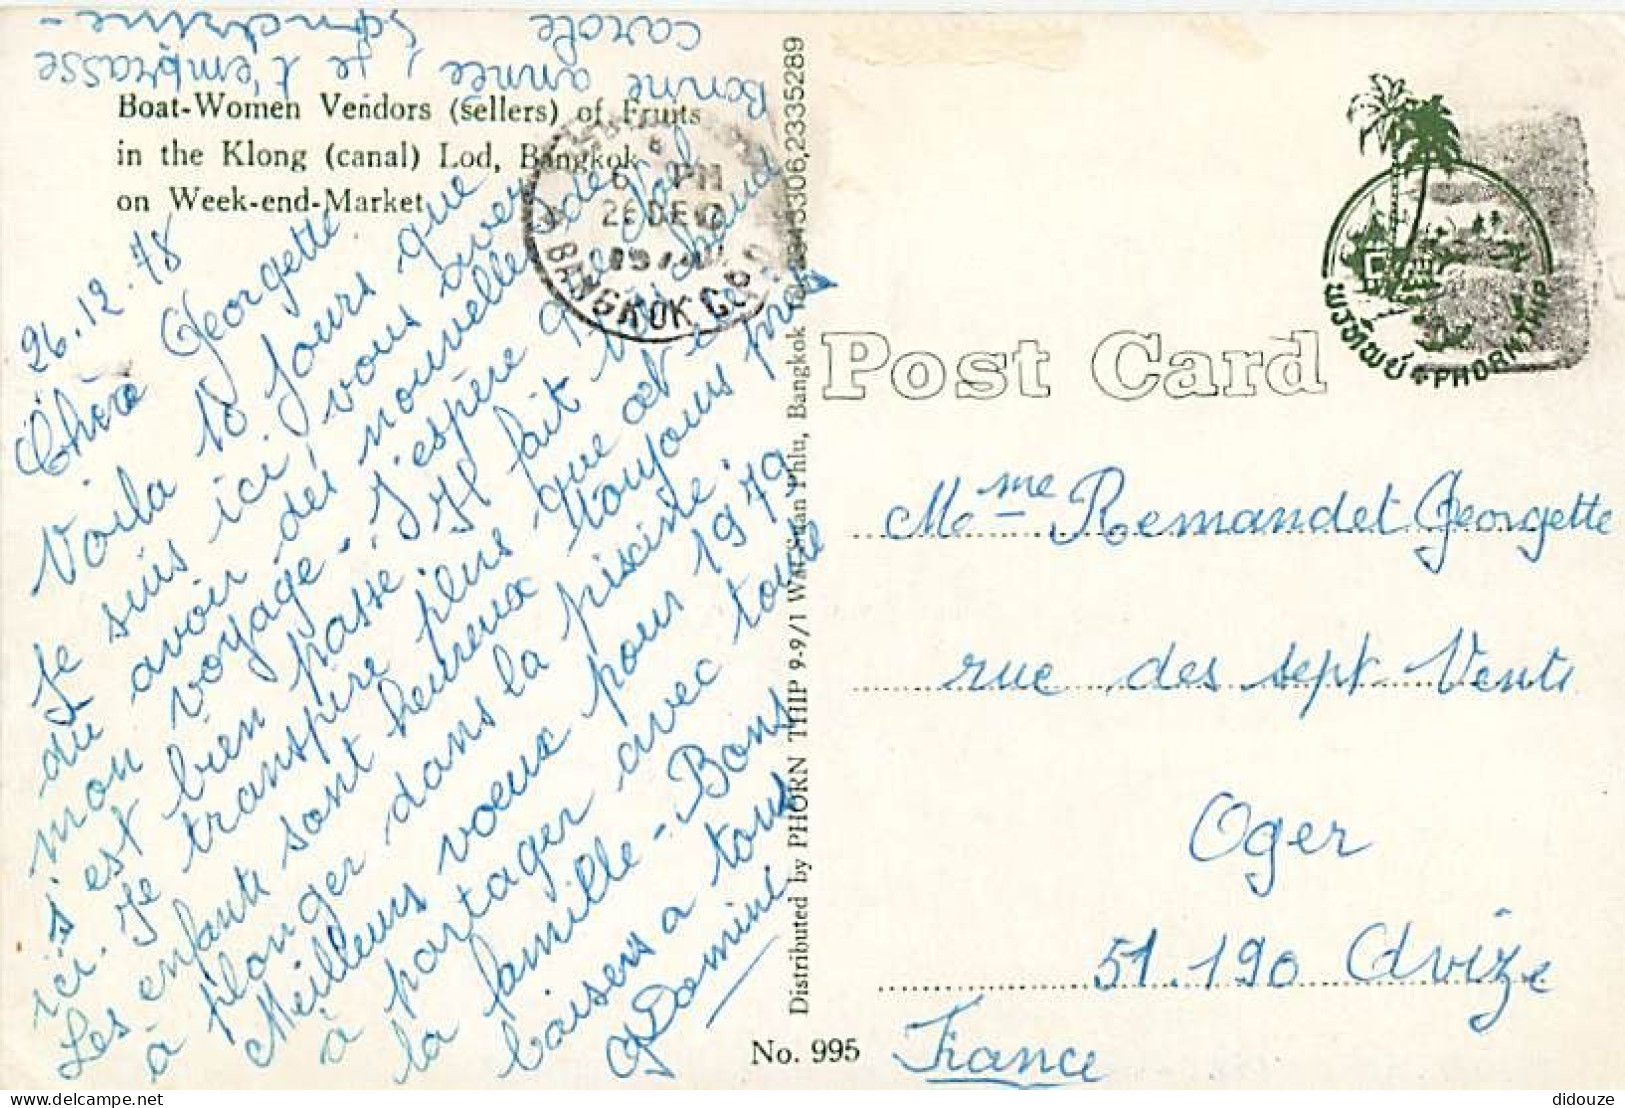 Boat-Women Vendors (sellers) of Fruits
in the Klong (canal) Lod, Bangkok
on Week-end-Market
26.12.78
Chère Georgette
Voila 10 jours que
je suis ici, vous avez
dû avoir des nouvelles de
mon voyage. J'espère que le Noël
s'est bien passé. Il fait très chaud
ici. Je transpire plus que cet été
Les enfants sont heureux toujours près
à plonger dans la piscine.
Meilleurs voeux pour 1979
à partager avec toute
la famille - Bons
baisers a tous
Domine
Bonne année, je t'embrasse
carole Sandrine -
6 PM
26 DE
BANGKOK G.P.O.
Distributed by PHORN THIP 9-9/1 Wat Phlu, Bangkok 23335289
No. 995
Post Card
พรทิพย์ PHORNTHIP
Mme Remandet Georgette
rue des sept Vents
Oger
51.190 Avize
France
didouze